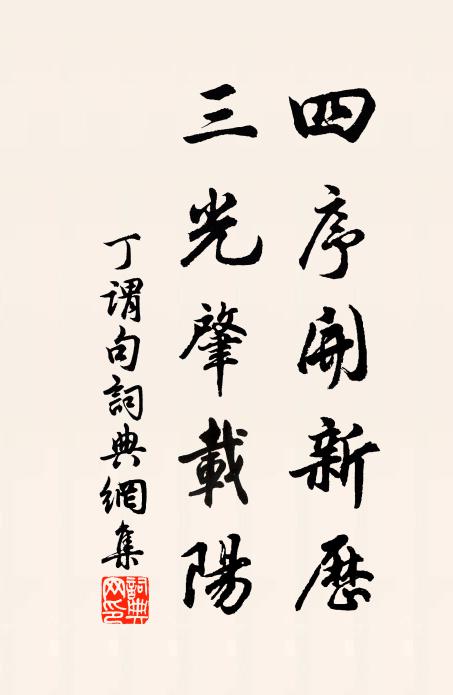 四序開新歷
三光肇載陽
丁謂句詞典網集
詞典網印